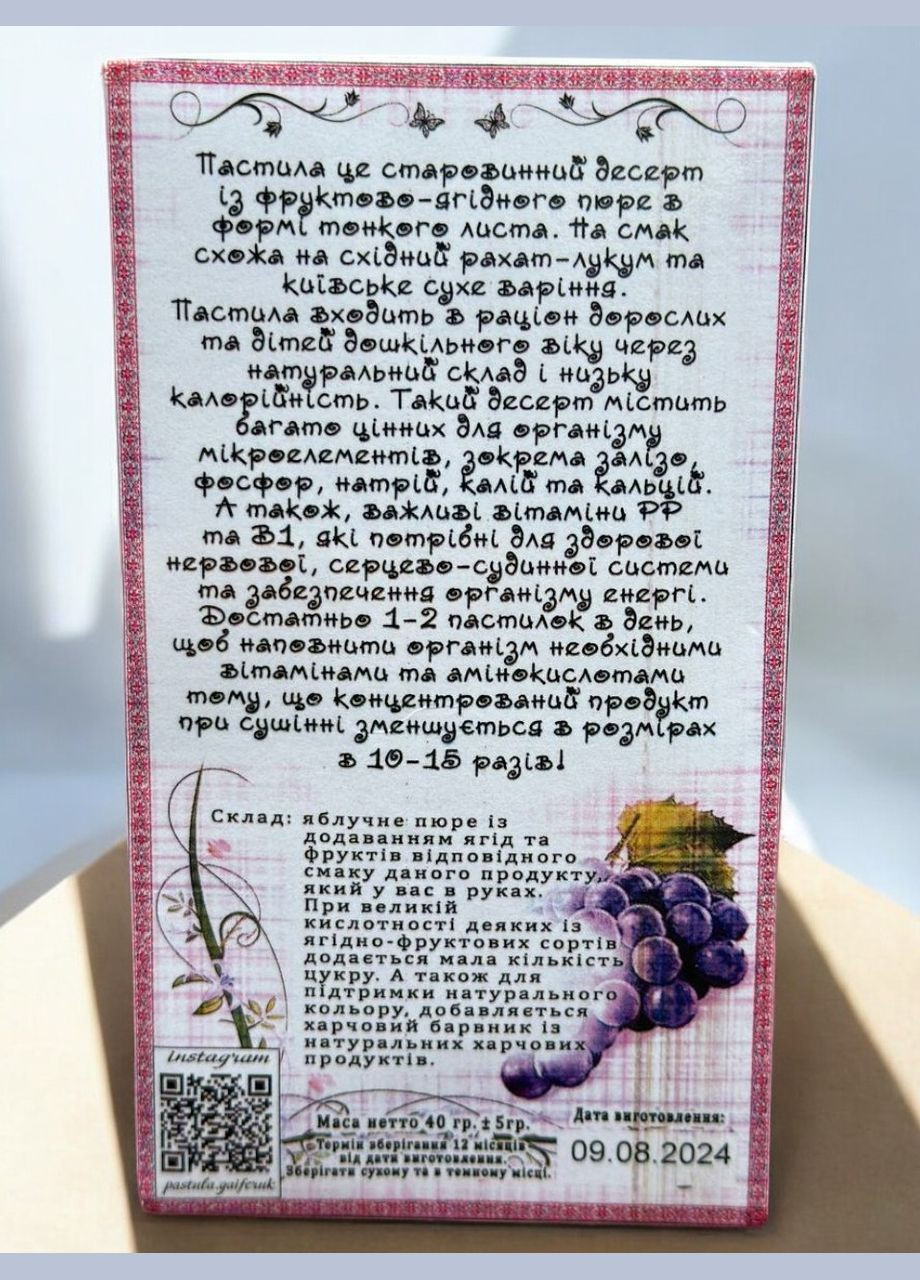 Пастила це старовинний десерт
із фруктово-ягідного пюре в
формі тонкого листа. На смак
схожа на східний рахат-лукум та
київське сухе варіння.
Пастила входить в раціон дорослих
та дітей дошкільного віку через
натуральний склад і низьку
калорійність. Такий десерт містить
багато цінних для організму
мікроелементів, зокрема залізо,
фосфор, натрій, калій та кальцій.
А також, важливі вітаміни РР
та В1, які потрібні для здорової
нервової, серцево-судинної системи
та забезпечення організму енергі.
Достатньо 1-2 пастилок в день,
щоб наповнити організм необхідними
вітамінами та амінокислотами
тому, що концентрований продукт
при сушінні зменшується в розмірах
в 10-15 разів!
Склад: яблучне пюре із
додаванням ягід та
фруктів відповідного
смаку даного продукту,
який у вас в руках.
При великій
кислотності деяких із
ягідно-фруктових сортів
додається мала кількість
цукру. А також для
підтримки натурального
кольору, добавляється
харчовий барвник із
натуральних харчових
продуктів.
instagram
pastula.gaiferuk
Маса нетто 40 гр. ± 5гр.
Термін зберігання 12 місяців
від дати виготовлення.
Зберігати сухому та в темному місці.
Дата виготовлення:
09.08.2024